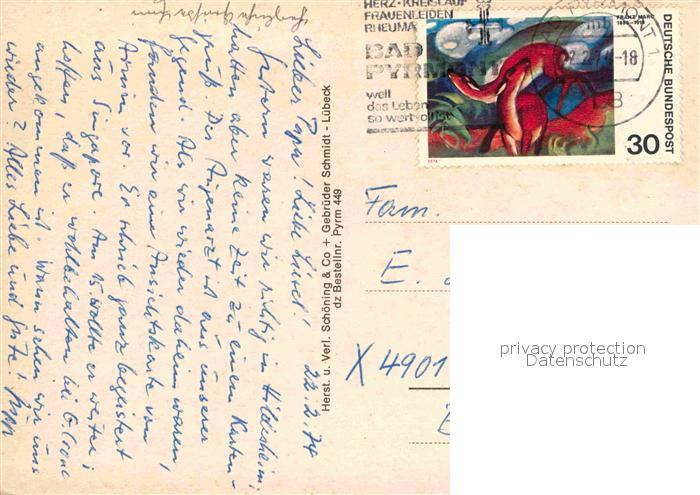 22.2.74
Lieber Papa! Liebe Liesel!
Gestern waren wir richtig in Hildesheim,
hatten aber keine Zeit zu einem Karten-
gruß. Der Augenarzt ist aus unserer
Gegend. Als wir wieder daheim waren,
fanden wir eine Ansichtskarte von
Armin vor. Er schrieb ganz begeistert
aus Singapore. Am 15. wollte er weiter;
hoffen, daß er wohlbehalten bei
angekommen ist. Wann sehen wir uns
wieder? Alles Liebe und Gute!
Herst. u. Verl. Schöning & Co + Gebrüder Schmidt - Lübeck
dz Bestellnr. Pyrm 449
HERZ-KREISLAUF
FRAUENLEIDEN
RHEUMA
BAD
PYRMONT
weil
das Leben
so wertvoll ist
PYRMONT 1
22.2.74-18
FRANZ MARC
1880-1916
DEUTSCHE BUNDESPOST
30
1974
Fam.
E.
X 4901
privacy protection
Datenschutz